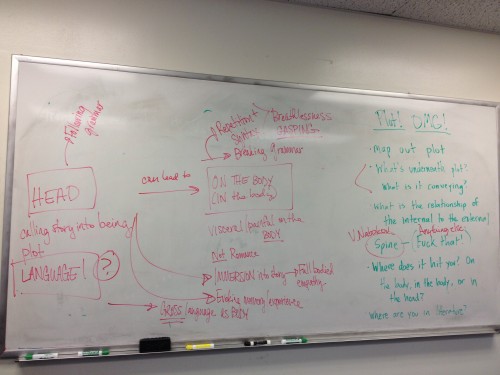 Following
grammar
HEAD
calling story into being
plot
LANGUAGE!
?
can lead to
Repetition +
Breathlessness
GASPING
Breaking grammar
ON THE BODY
(IN the body)
Visceral / on the
BODY
Romance
IMMERSION into story → Full bodied
empathy
Evoking sensory experience
GROSS / language as BODY
Plot! OMG!
• Map out plot
• What's underneath plot?
What is it conveying?
• What is the relationship of
the internal to the external
V. Nabokov
Anything else
Spine - Fuck that!
• Where does it hit you? On
the body, in the body, or in
the head?
Where are you in literature?